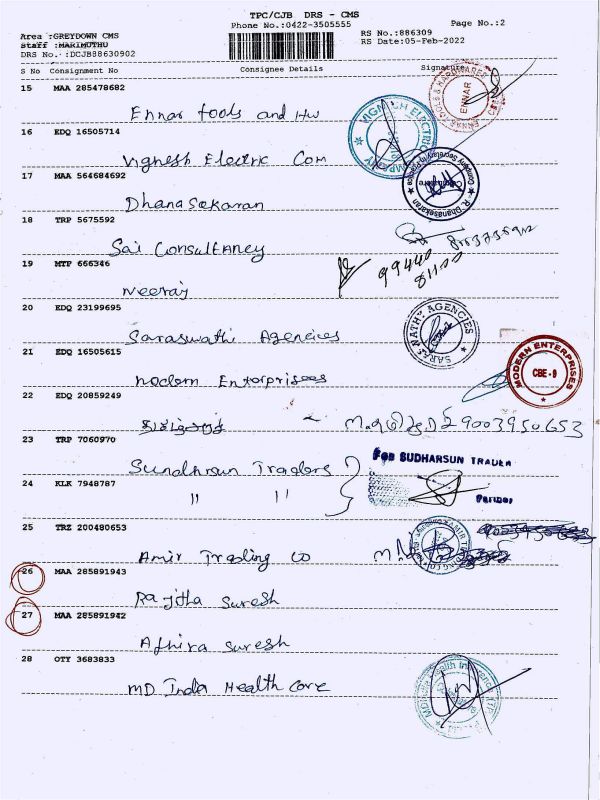 TPC/CJB DRS - CMS
Phone No.:0422-3505555
Page No.:2
Area :GREYDOWN CMS
Staff :MARIMUTHU
DRS No.:DCJB88630902
RS No.:886309
RS Date:05-Feb-2022
S No Consignment No Consignee Details Signature
15 MAA 285478682
Ennar tools and Hw
ENNAR
16 EDQ 16505714
Vignesh Electric Com
VIGNESH ELECTRIC COMPANY
17 MAA 564684692
Dhanasekaran
R. Dhanasekaran
Company Secretary in Practice
Coimbatore
18 TRP 5675592
Sai Consultancy
19 MTF 666346
99440
81100
Neeraj
20 EDQ 23199695
Saraswathi Agencies
AGENCIES
21 EDQ 16505615
Modern Enterprises
MODERN ENTERPRISES
CBE - 9
22 EDQ 20859249
9003950653
23 TRP 7060970
Sundharsun Traders
For SUDHARSUN TRADER
24 KLK 7948787
" "
Partner
25 TRZ 200480653
Amir Trading Co
26 MAA 285891943
Rajitha Suresh
27 MAA 285891942
Athira Suresh
28 OTY 3683833
MD India Health Care